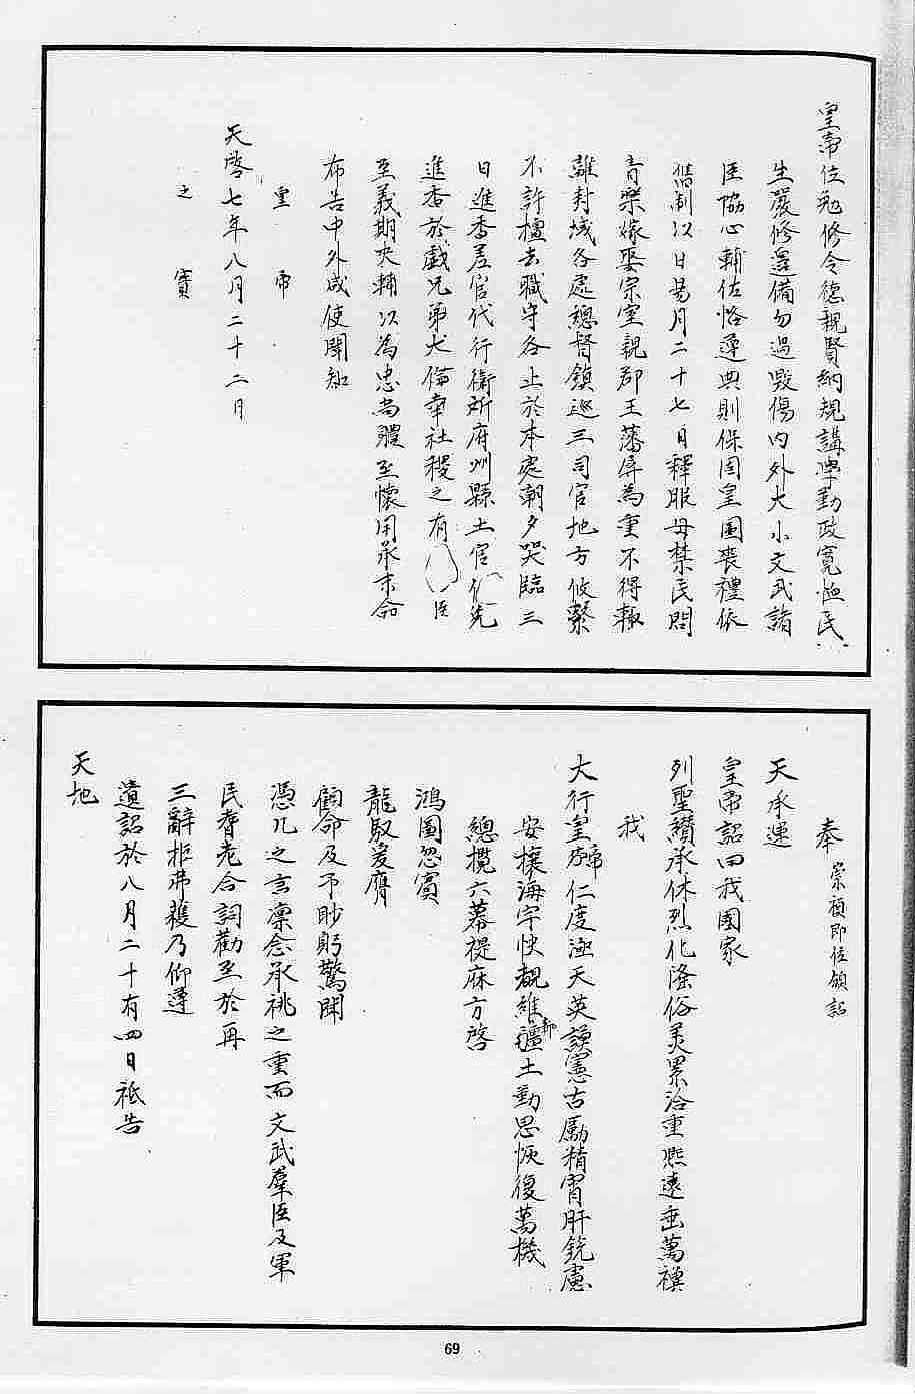 皇帝位勉修令德親賢納規講學勤政寬恤民
生嚴修邊備勿過毀傷內外大小文武諸
臣協心輔佐恪遵典則保固皇圖喪禮依
舊制以日易月二十七日釋服毋禁民間
音樂嫁娶宗室親郡王藩屏為重不得輒
離封域各處總督鎮巡三司官地方攸繫
不許擅去職守各止於本處朝夕哭臨三
日進香差官代行衛所府州縣土官俱免
進香於戲兄弟大倫幸社稷之有 臣
至義期夾輔以為忠尚體至懷用承末命
布告中外咸使聞知
皇帝
天啓七年八月二十二日
之寶
奉 崇禎即位頒詔
天承運
皇帝詔曰我國家
列聖纘承休烈化隆俗美累洽重熙遠垂萬禩
我
大行皇帝仁度涵天英謨憲古勵精宵旰銳慮
安攘海宇快覩維新疆土勤思恢復萬機
總攬六幕禔庥方啓
鴻圖忽賓
龍馭爰膺
顧命及予眇躬驚聞
憑几之言凛念承祧之重而文武羣臣及軍
民耆老合詞勸至於再
三辭拒弗獲乃仰遵
遺詔於八月二十有四日祗告
天地
69